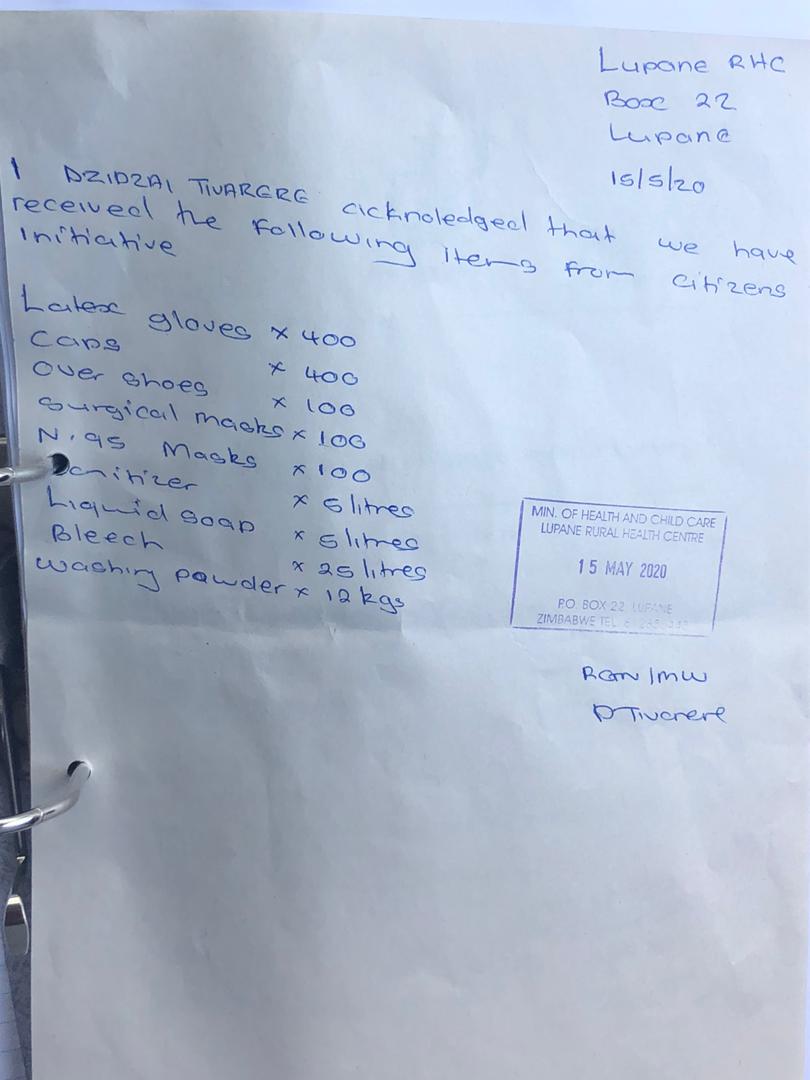 Lupane RHC
Box 22
Lupane
15/5/20
I DZIDZAI TIVARERE acknoledged that we have
received the following items from citizens
Initiative
Latex gloves x 400
Caps x 400
Over shoes x 100
Surgical masks x 100
N.95 Masks x 100
Sanitizer x 5 litres
Liquid soap x 5 litres
Bleech x 25 litres
Washing pawder x 12 kgs
MIN. OF HEALTH AND CHILD CARE
LUPANE RURAL HEALTH CENTRE
15 MAY 2020
P.O. BOX 22, LUPANE
ZIMBABWE TEL
RGN/MW
D Tivarere